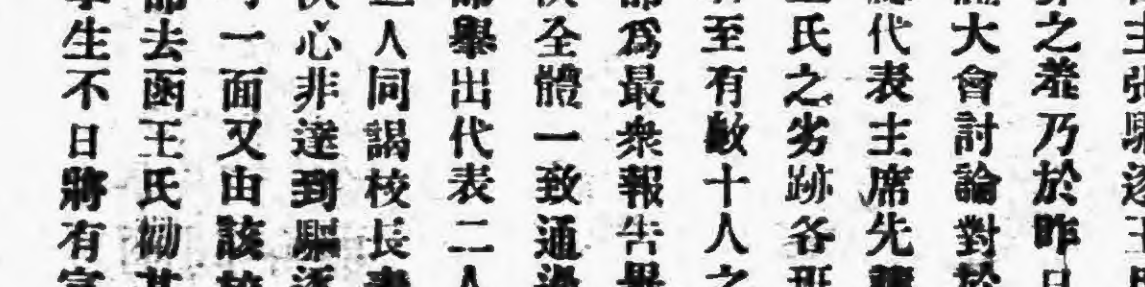 主張驅逐王
之羞乃於昨日
大會討論對於
代表主席先
氏之劣跡各班
至有數十人之
爲最衆報告畢
全體一致通過
舉出代表二人
人同謁校長
心非達到驅逐
一面又由該校
去函王氏勸其
生不日將有